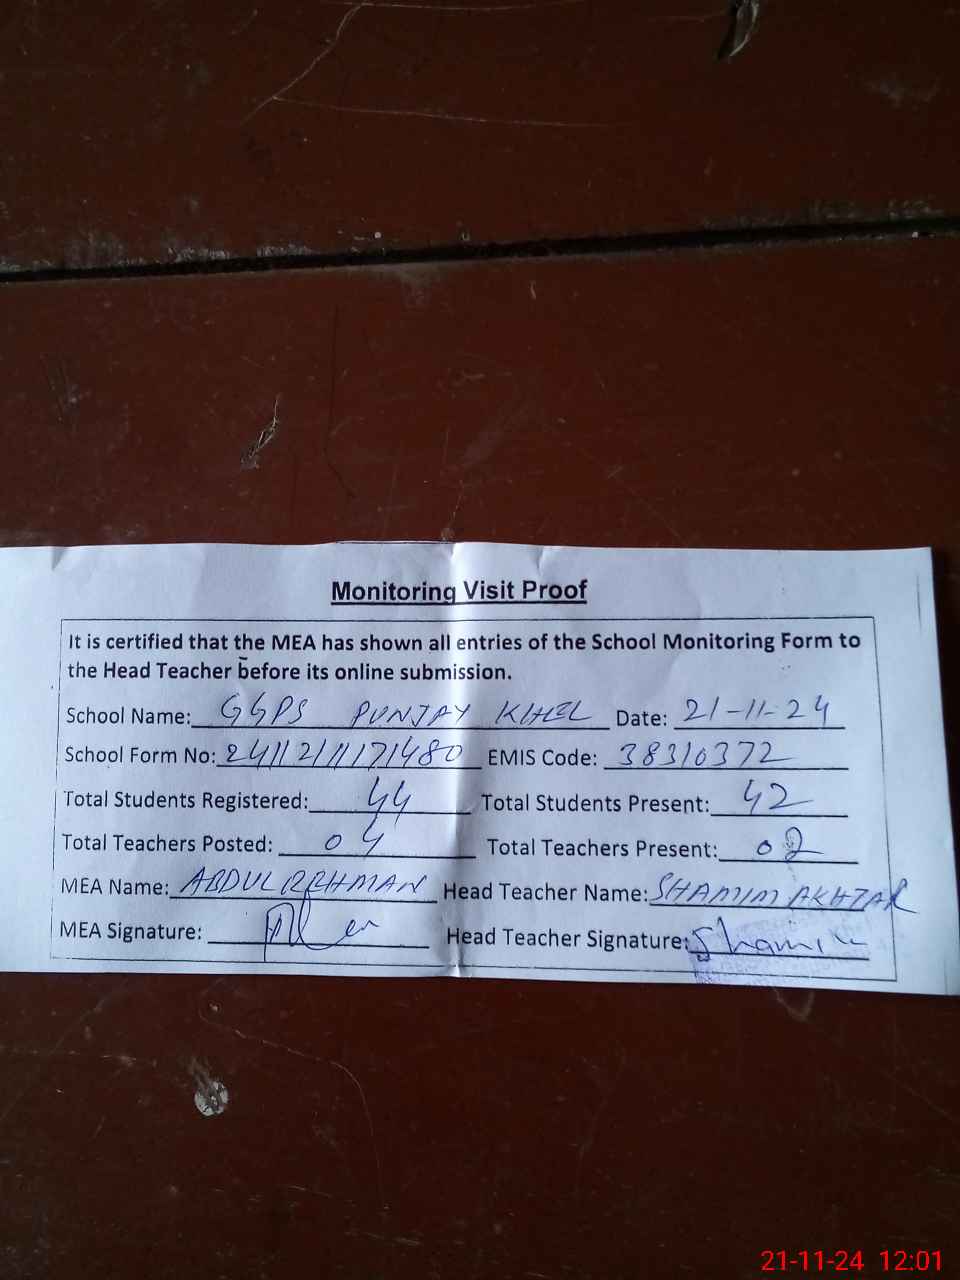 Monitoring Visit Proof
It is certified that the MEA has shown all entries of the School Monitoring Form to
the Head Teacher before its online submission.
School Name: GGPS PUNJAY KHEL Date: 21-11-24
School Form No: 2411211171480 EMIS Code: 38310372
Total Students Registered: 44 Total Students Present: 42
Total Teachers Posted: 04 Total Teachers Present: 02
MEA Name: ABDUL REHMAN Head Teacher Name: SHAMIM AKHTAR
MEA Signature: Head Teacher Signature: Shamim
21-11-24 12:01